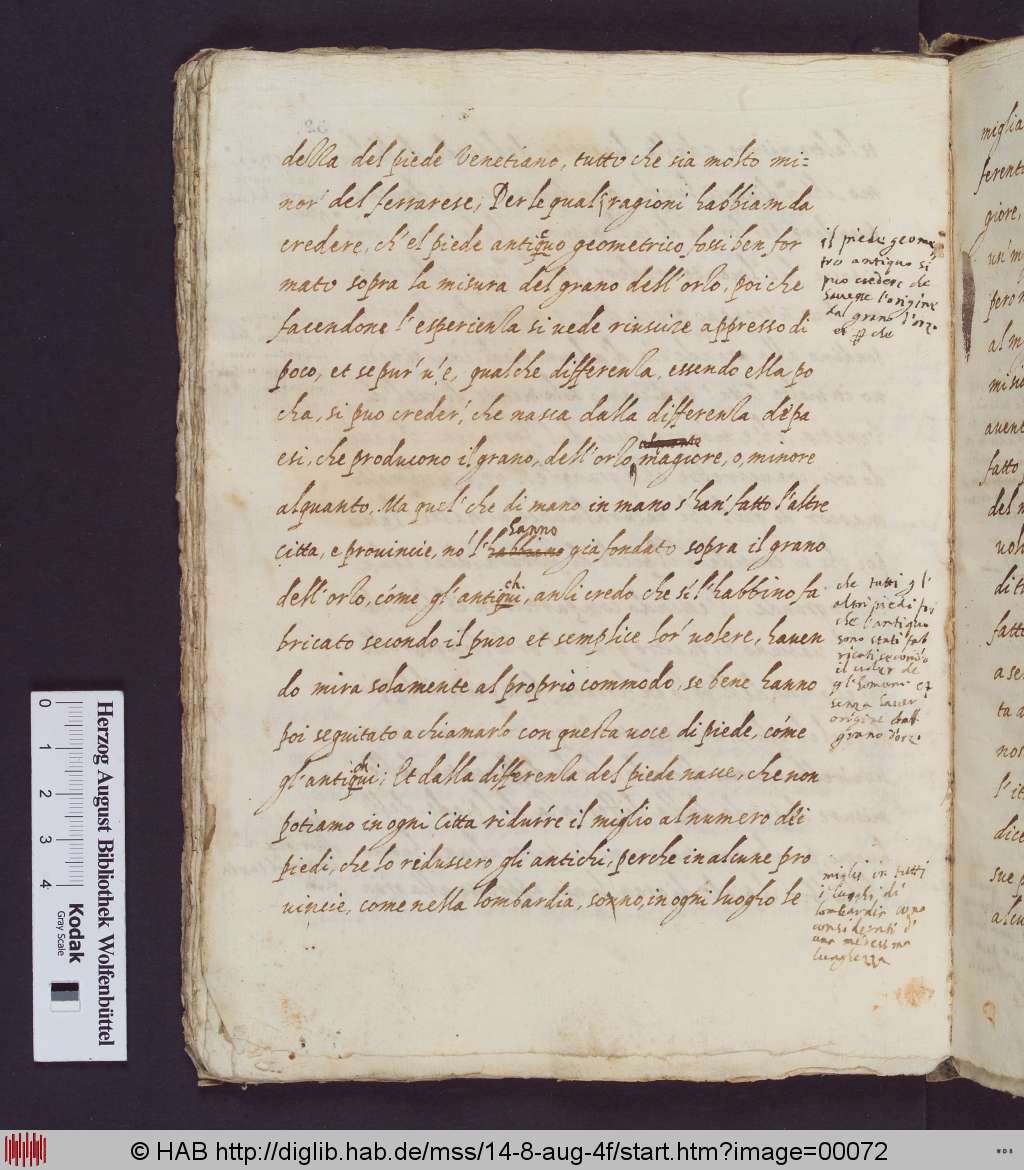 della del piede Venetiano, tutto che sia molto mi=
nor' del ferrarese; Per le quali ragioni habbiam da
credere, ch'el piede antiquo geometrico fossi ben for
mato sopra la misura del grano dell'orzo, poi che
facendone l'esperienza si uede riuscire appresso di
poco, et se pur' u'e, qualche differenza, essendo ella po
cha, si puo creder', che nasca dalla differenza dei pa
esi, che producono il grano, dell'orzo, magiore, o, minore
alquanto. Ma quel' che di mano in mano s'han' fatto l'altre
hanno
citta, e prouincie, no' l'habbiano gia fondato sopra il grano
ch
dell'orzo, cóme gl'antiqui, anzi credo che si l'habbino fa
bricato secondo il puro et semplice lor' uolere, hauen
do mira solamente al proprio commodo, se bene hanno
poi seguitato a chiamarlo con questa uoce di piede, cóme
ch
gl'antiqui; Et dalla differenza del piede nasce, che non
potiamo in ogni Citta ridurre il miglio al numero dei
piedi, che lo ridussero gli antichi, perche in alcune pro
uincie, come nella lombardia, sonno, in ogni luogho le
il piede geome
trico antiquo si
puo credere che
hauesse l'origine
dal grano l'orzo
et che
che tutti gl'
altri piedi fori
che l'antiquo
sono stati fab
ricati secondo
il uoler de
gl'homini et
senza hauer
origine dall
grano d'orzo
miglio in tutti
i luoghi di
lombardia sono
considerati d'
una medesima
lunghezza
miglia
ferent
giore,
un' m
pero
al m
misu
auene
fatto
del m
uol
di t
fatto
a se
ta
nos
l'it
dice
sue p
alcu
0 1 2 3 4
Herzog August Bibliothek Wolfenbüttel
Kodak
Gray Scale
© HAB http://diglib.hab.de/mss/14-8-aug-4f/start.htm?image=00072